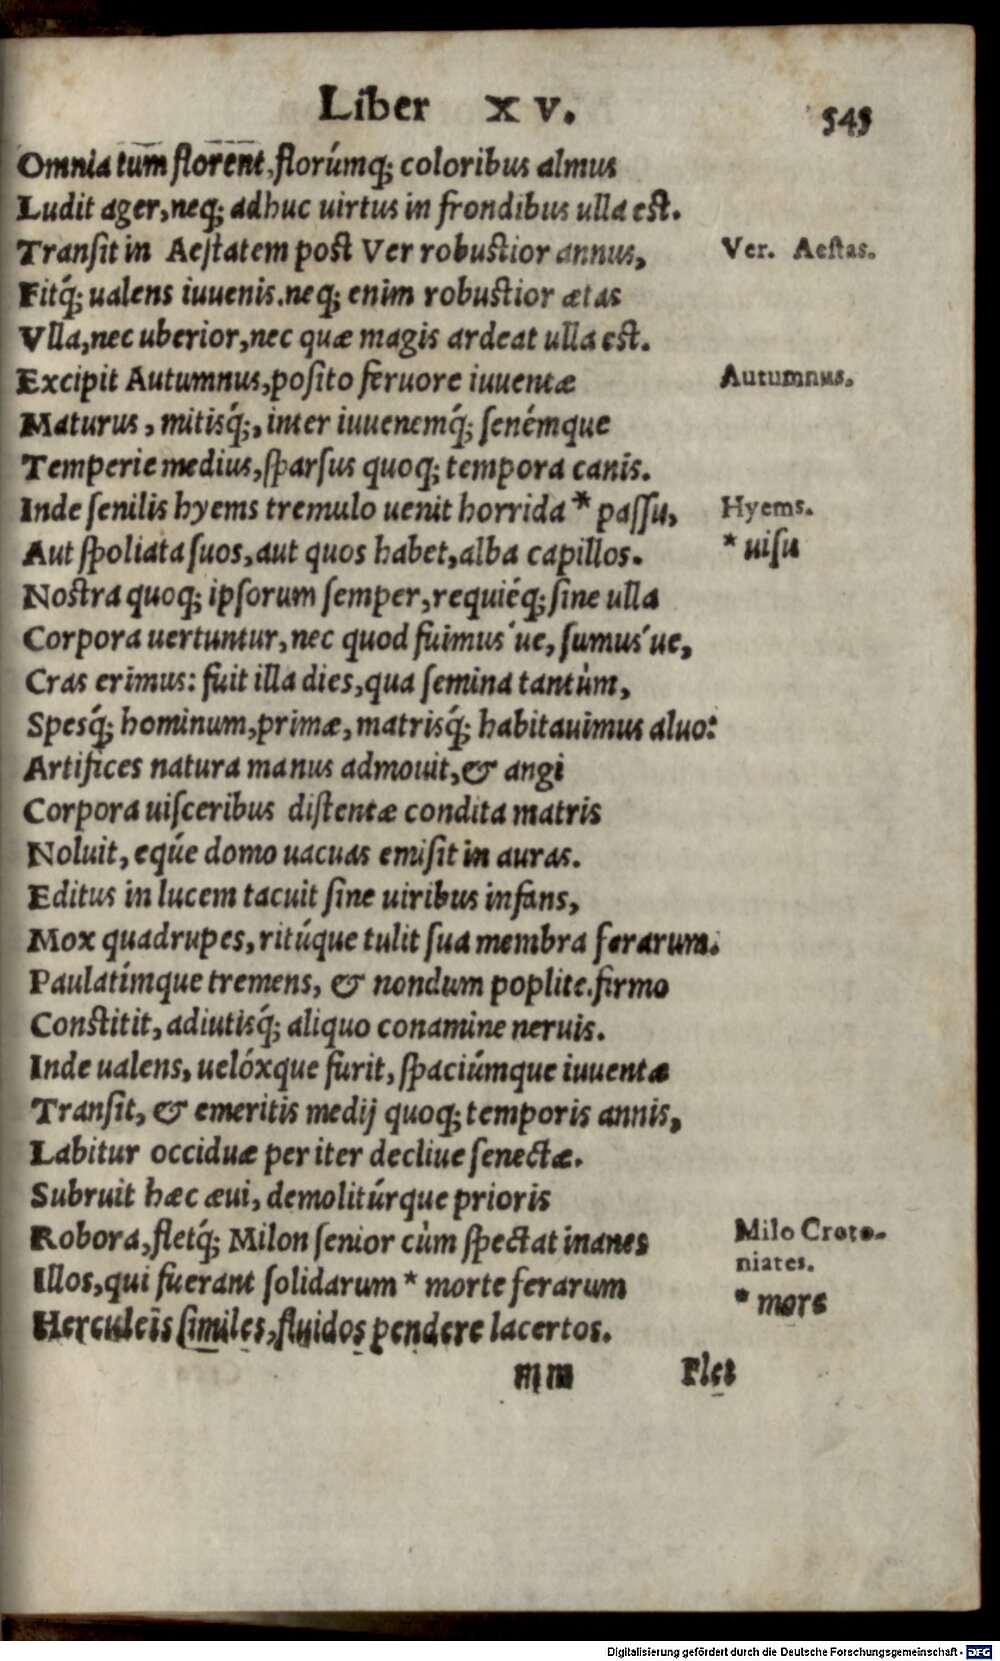 Liber XV. 545
Omnia tum florent, florúmq; coloribus almus
Ludit ager, neq; adhuc uirtus in frondibus ulla est.
Transit in Aestatem post Ver robustior annus,
Ver. Aestas.
Fitq́; ualens iuuenis. neq; enim robustior ætas
Vlla, nec uberior, nec quæ magis ardeat ulla est.
Excipit Autumnus, posito feruore iuuentæ
Autumnus.
Maturus, mitisq́;, inter iuuenemq́; senémque
Temperie medius, sparsus quoq; tempora canis.
Inde senilis hyems tremulo uenit horrida * passu,
Hyems.
Aut spoliata suos, aut quos habet, alba capillos.
* uisu
Nostra quoq; ipsorum semper, requiéq; sine ulla
Corpora uertuntur, nec quod fuimus´ue, sumus´ue,
Cras erimus: fuit illa dies, qua semina tantùm,
Spesq́; hominum, primæ, matrisq́; habitauimus aluo:
Artifices natura manus admouit, & angi
Corpora uisceribus distentæ condita matris
Noluit, eqúe domo uacuas emisit in auras.
Editus in lucem tacuit sine uiribus infans,
Mox quadrupes, ritúque tulit sua membra ferarum.
Paulatímque tremens, & nondum poplite. firmo
Constitit, adiutisq́; aliquo conamine neruis.
Inde ualens, uelóxque furit, spaciúmque iuuentæ
Transit, & emeritis medij quoq; temporis annis,
Labitur occiduæ per iter decliue senectæ.
Subruit hæc æui, demolitúrque prioris
Robora, fletq́; Milon senior cùm spectat inanes
Milo Croto-
niates.
Illos, qui fuerant solidarum * morte ferarum
* more
Herculeis similes, fluidos pendere lacertos.
mm Flet
Digitalisierung gefördert durch die Deutsche Forschungsgemeinschaft - DFG